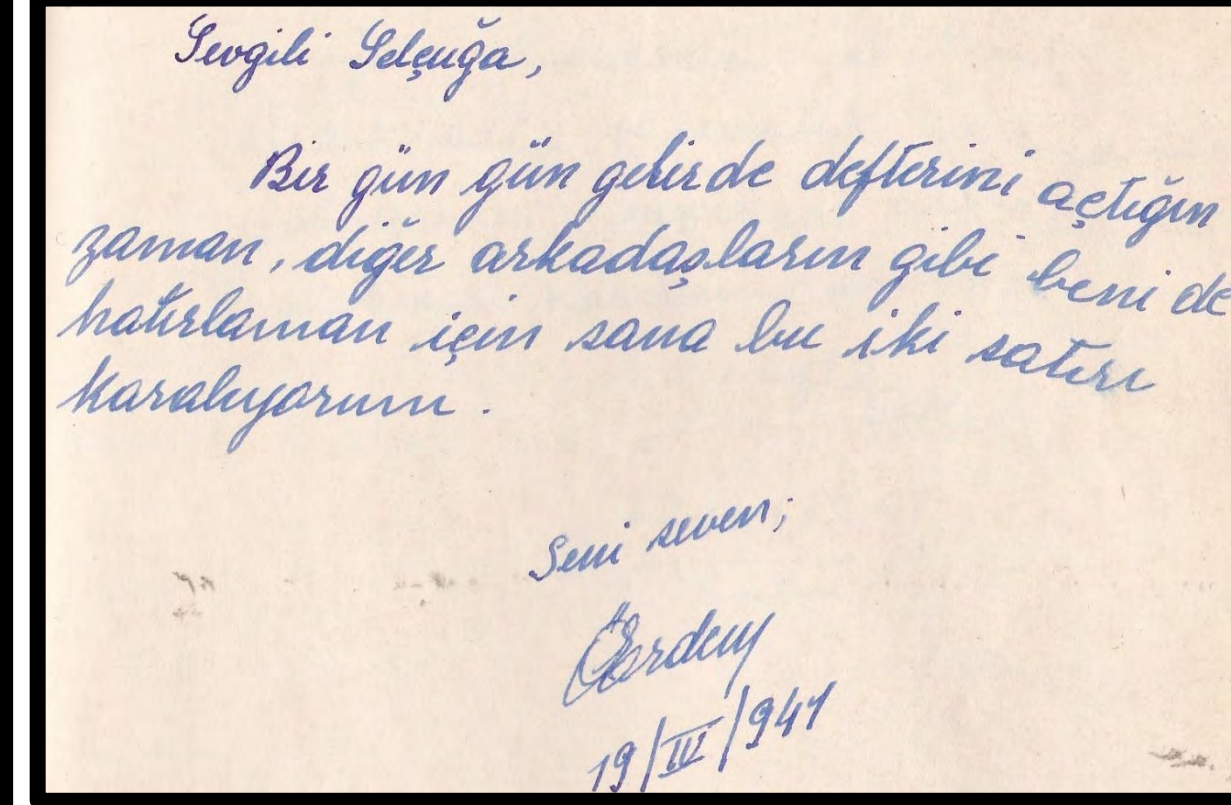 Sevgili Selçuğa,
Bir gün gün gelirde defterini açtığın
zaman, diğer arkadaşların gibi beni de
hatırlaman için sana bu iki satırı
karalıyorum.
Seni seven;
19/IV/941